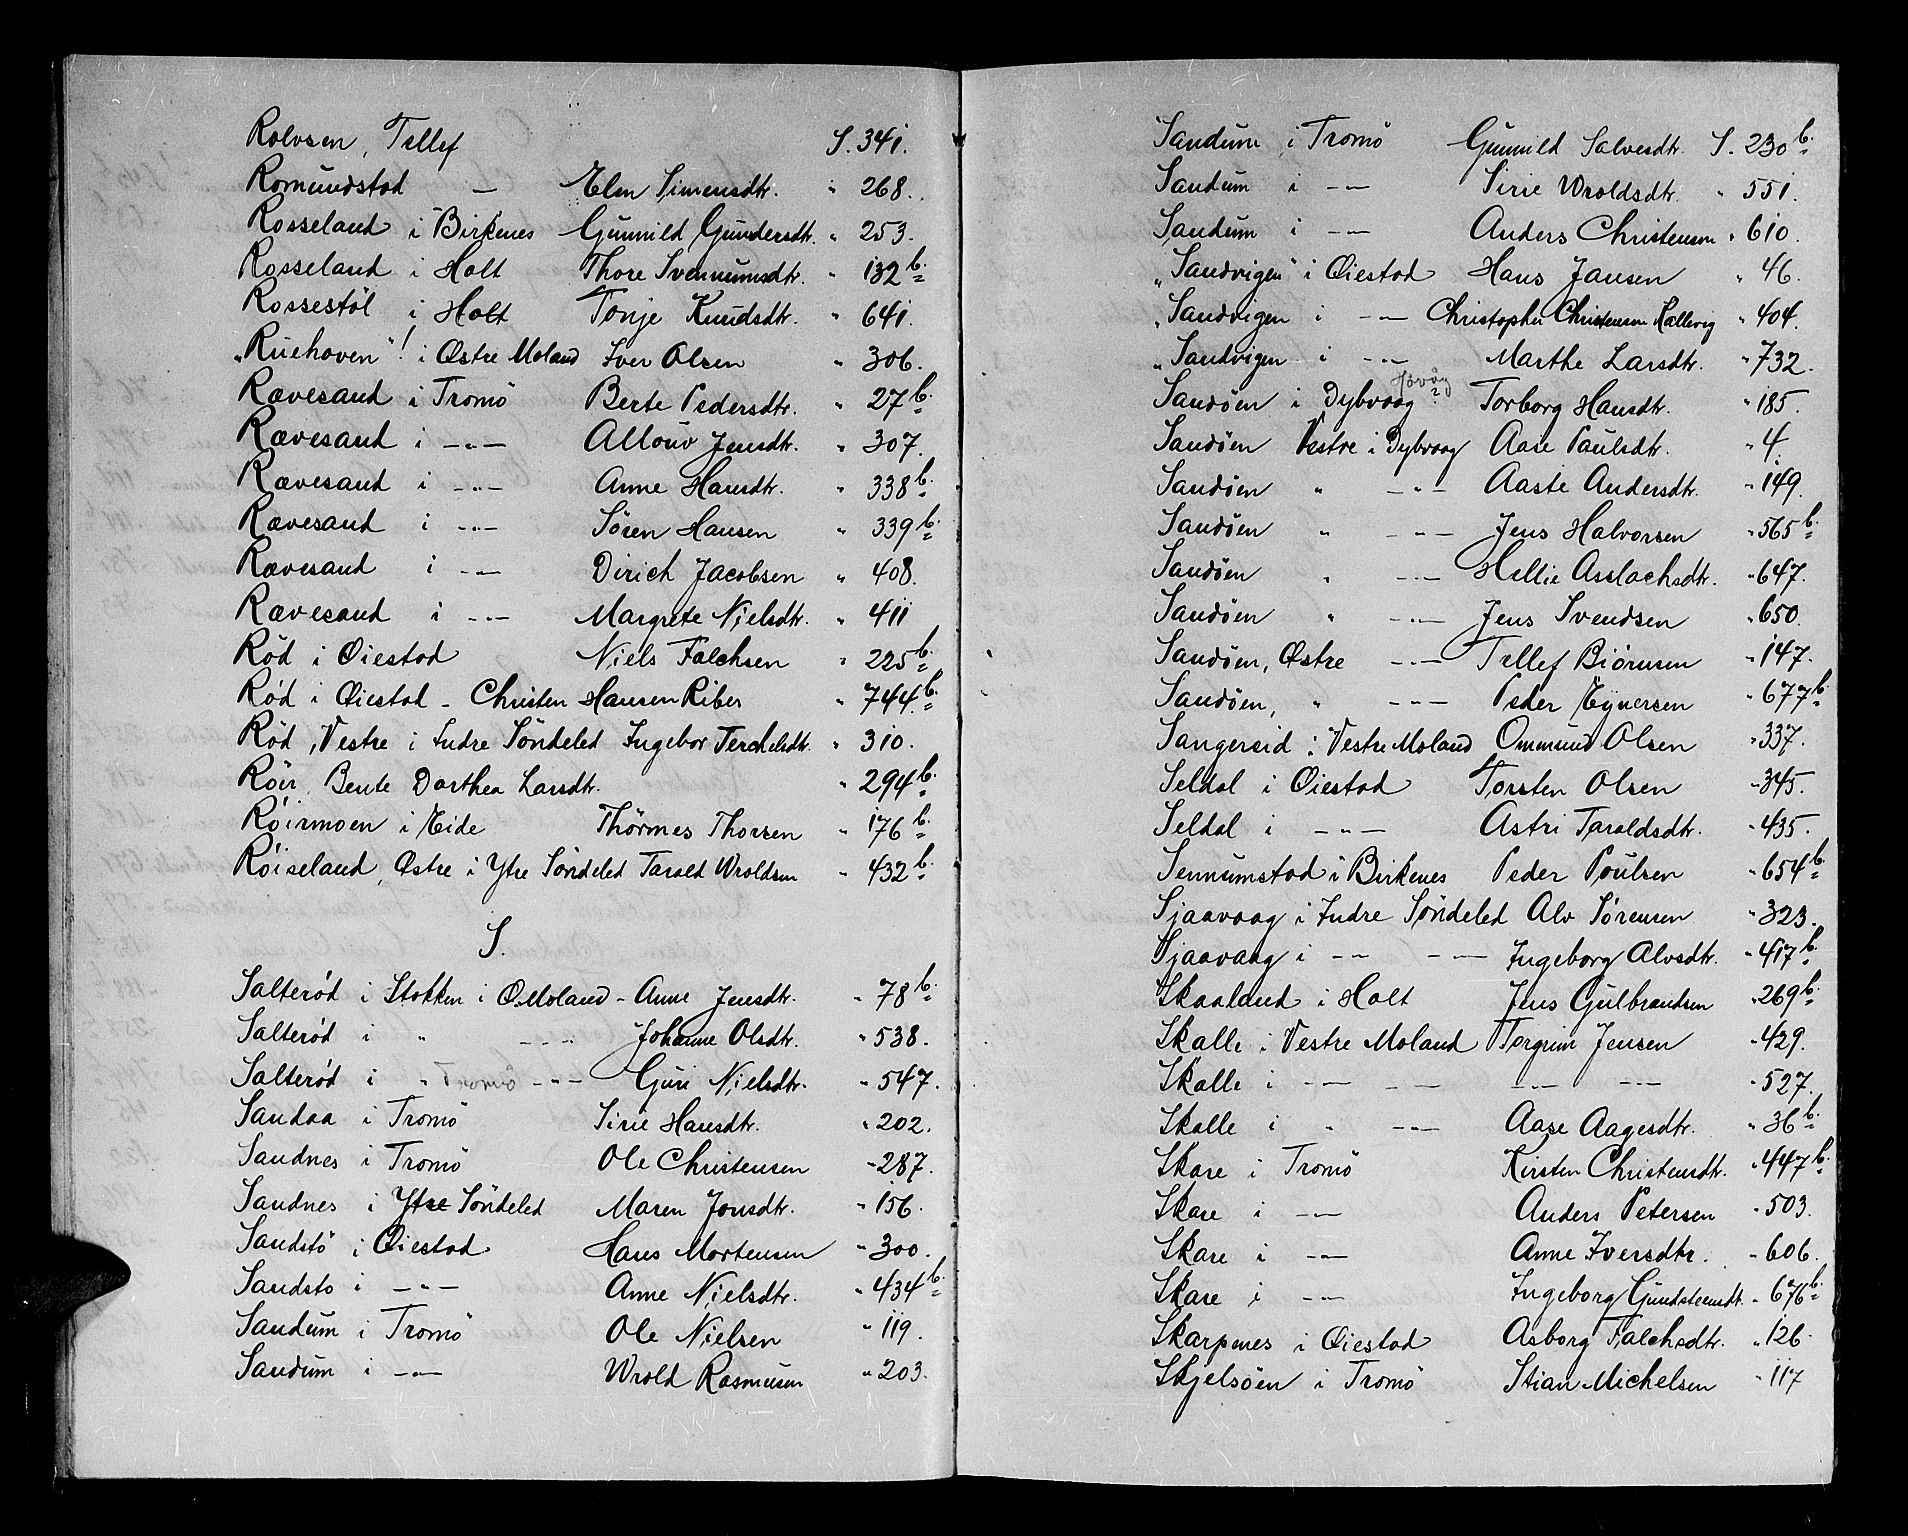 Rolvsen, Tellef S. 341.
Romundstad — Elen Simensdtr. " 268.
Rosseland i Birkenes Gunnild Gundersdtr. " 253.
Rosseland i Holt Thore Svennumsdtr. " 132 b.
Rossestöl i Holt Tonje Knudsdtr. " 641.
"Ruehoven"! i Østre Moland Iver Olsen " 306.
Rævesand i Tromö Berte Pedersdtr. " 27 b.
Rævesand i —"— Allouv Jensdtr. " 307.
Rævesand i —"— Anne Hansdtr. " 338 b.
Rævesand i —"— Sören Hansen " 339 b.
Rævesand i —"— Dirich Jacobsen " 408.
Rævesand i —"— Margrete Nielsdtr. " 411
Röd i Øiestad Niels Falchsen " 225 b.
Rød i Øiestad - Christen Hansen Riber " 744 b.
Röd, Vestre i Indre Söndeled Ingebor Terchelsdtr. " 310.
Röir, Bente Dorthea Larsdtr. " 294 b.
Röirmoen i Eide Thörmes Thorsen " 176 b.
Röiseland, Østre i Ytre Söndeled Tarald Wroldsen " 432 b.
S.
Salteröd i Stokken i Ø. Moland - Anne Jensdtr. " 78 b.
Salteröd i " —"— Johanne Olsdtr. " 538.
Salteröd i " Tromö —"— Guri Nielsdtr. " 547.
Sandaa i Tromö Sirie Hansdtr. " 202.
Sandnes i Tromö Ole Christensen " 287.
Sandnes i Ytre Söndeled Maren Jonsdtr. " 156.
Sandstö i Øiestad Hans Mortensen " 300.
Sandstö i —"— Anne Nielsdtr. " 434 b.
Sandum i Tromö Ole Nielsen " 119.
Sandum i —"— Wrold Rasmusen " 203.
Sandum i Tromö Gunnild Salvesdtr. S. 230 b.
Sandum i —"— Sirie Wroldsdtr. " 551.
Sandum i —"— Anders Christensen " 610.
"Sandvigen" i Øiestad Hans Jansen " 46.
"Sandvigen i —"— Christopher Christensen Hallevig " 404.
"Sandvigen i —"— Marthe Larsdtr. " 732.
Sandöen i Dybvaag Hövåg ? Torborg Hansdtr. " 185.
Sandöen Vestre i Dybvaag Aase Paulsdtr. " 4.
Sandöen " —"— Aaste Andersdtr. " 149.
Sandöen " —"— Jens Halvorsen " 565 b.
Sandöen " —"— Hellie Asslachsdtr. " 647.
Sandöen " —"— Jens Svendsen " 650.
Sandöen, Østre —"— Tellef Biörnsen " 147.
Sandöen, " —"— Peder Eynersen " 677 b.
Sangereid i Vestre Moland Ommund Olsen " 337.
Seldal i Øiestad Torsten Olsen " 345.
Seldal i —"— Astri Taraldsdtr. " 435.
Sennumstad i Birkenes Peder Poulsen " 654 b.
Sjaavaag i Indre Söndeled Alv Sørensen " 323.
Sjaavaag i —"— —"— Ingeborg Alvsdtr. " 417 b.
Skaaland i Holt Jens Gulbrandsen " 269 b.
Skalle i Vestre Moland Torgrim Jensen " 429.
Skalle i —"— —"— —"— —"— " 527.
Skalle i " —"— Aase Aagesdtr. " 36 b.
Skare i Tromö Kirsten Christensdtr. " 447 b.
Skare i —"— Anders Petersen " 503.
Skare i —"— Anne Iversdtr. " 606.
Skare i —"— Ingeborg Gundsteensdt. " 676 b.
Skarpnes i Øiestad Asborg Falchsdtr. " 126.
Skjelsöen i Tromö Stian Michelsen " 117